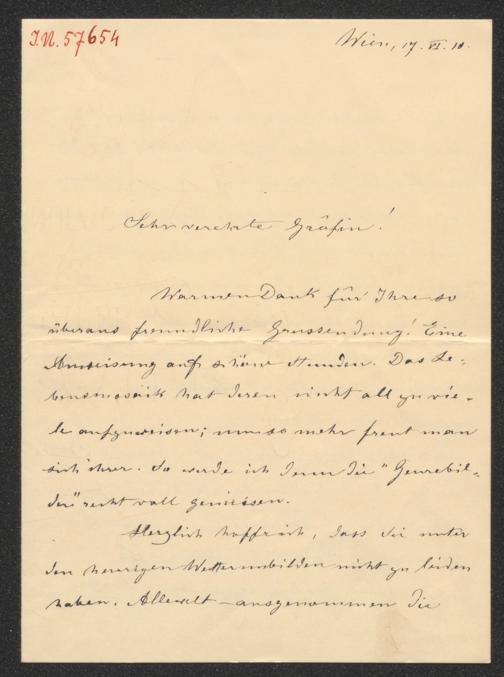 I.N. 57654
Wien, 17. VI. 10.
Sehr verehrte Gräfin!
Warmen Dank für Ihre so
überaus freundliche Grussendung! Eine
Anweisung auf schöne Stunden. Das Le-
bensmosaik hat deren nicht all zu vie-
le aufzuweisen; um so mehr freut man
sich ihrer. So werde ich denn die "Genrebil-
der" recht voll geniessen.
Herzlich hoffe ich, dass Sie unter
den heurigen Wetterunbilden nicht zu leiden
haben. Allewelt - ausgenommen die